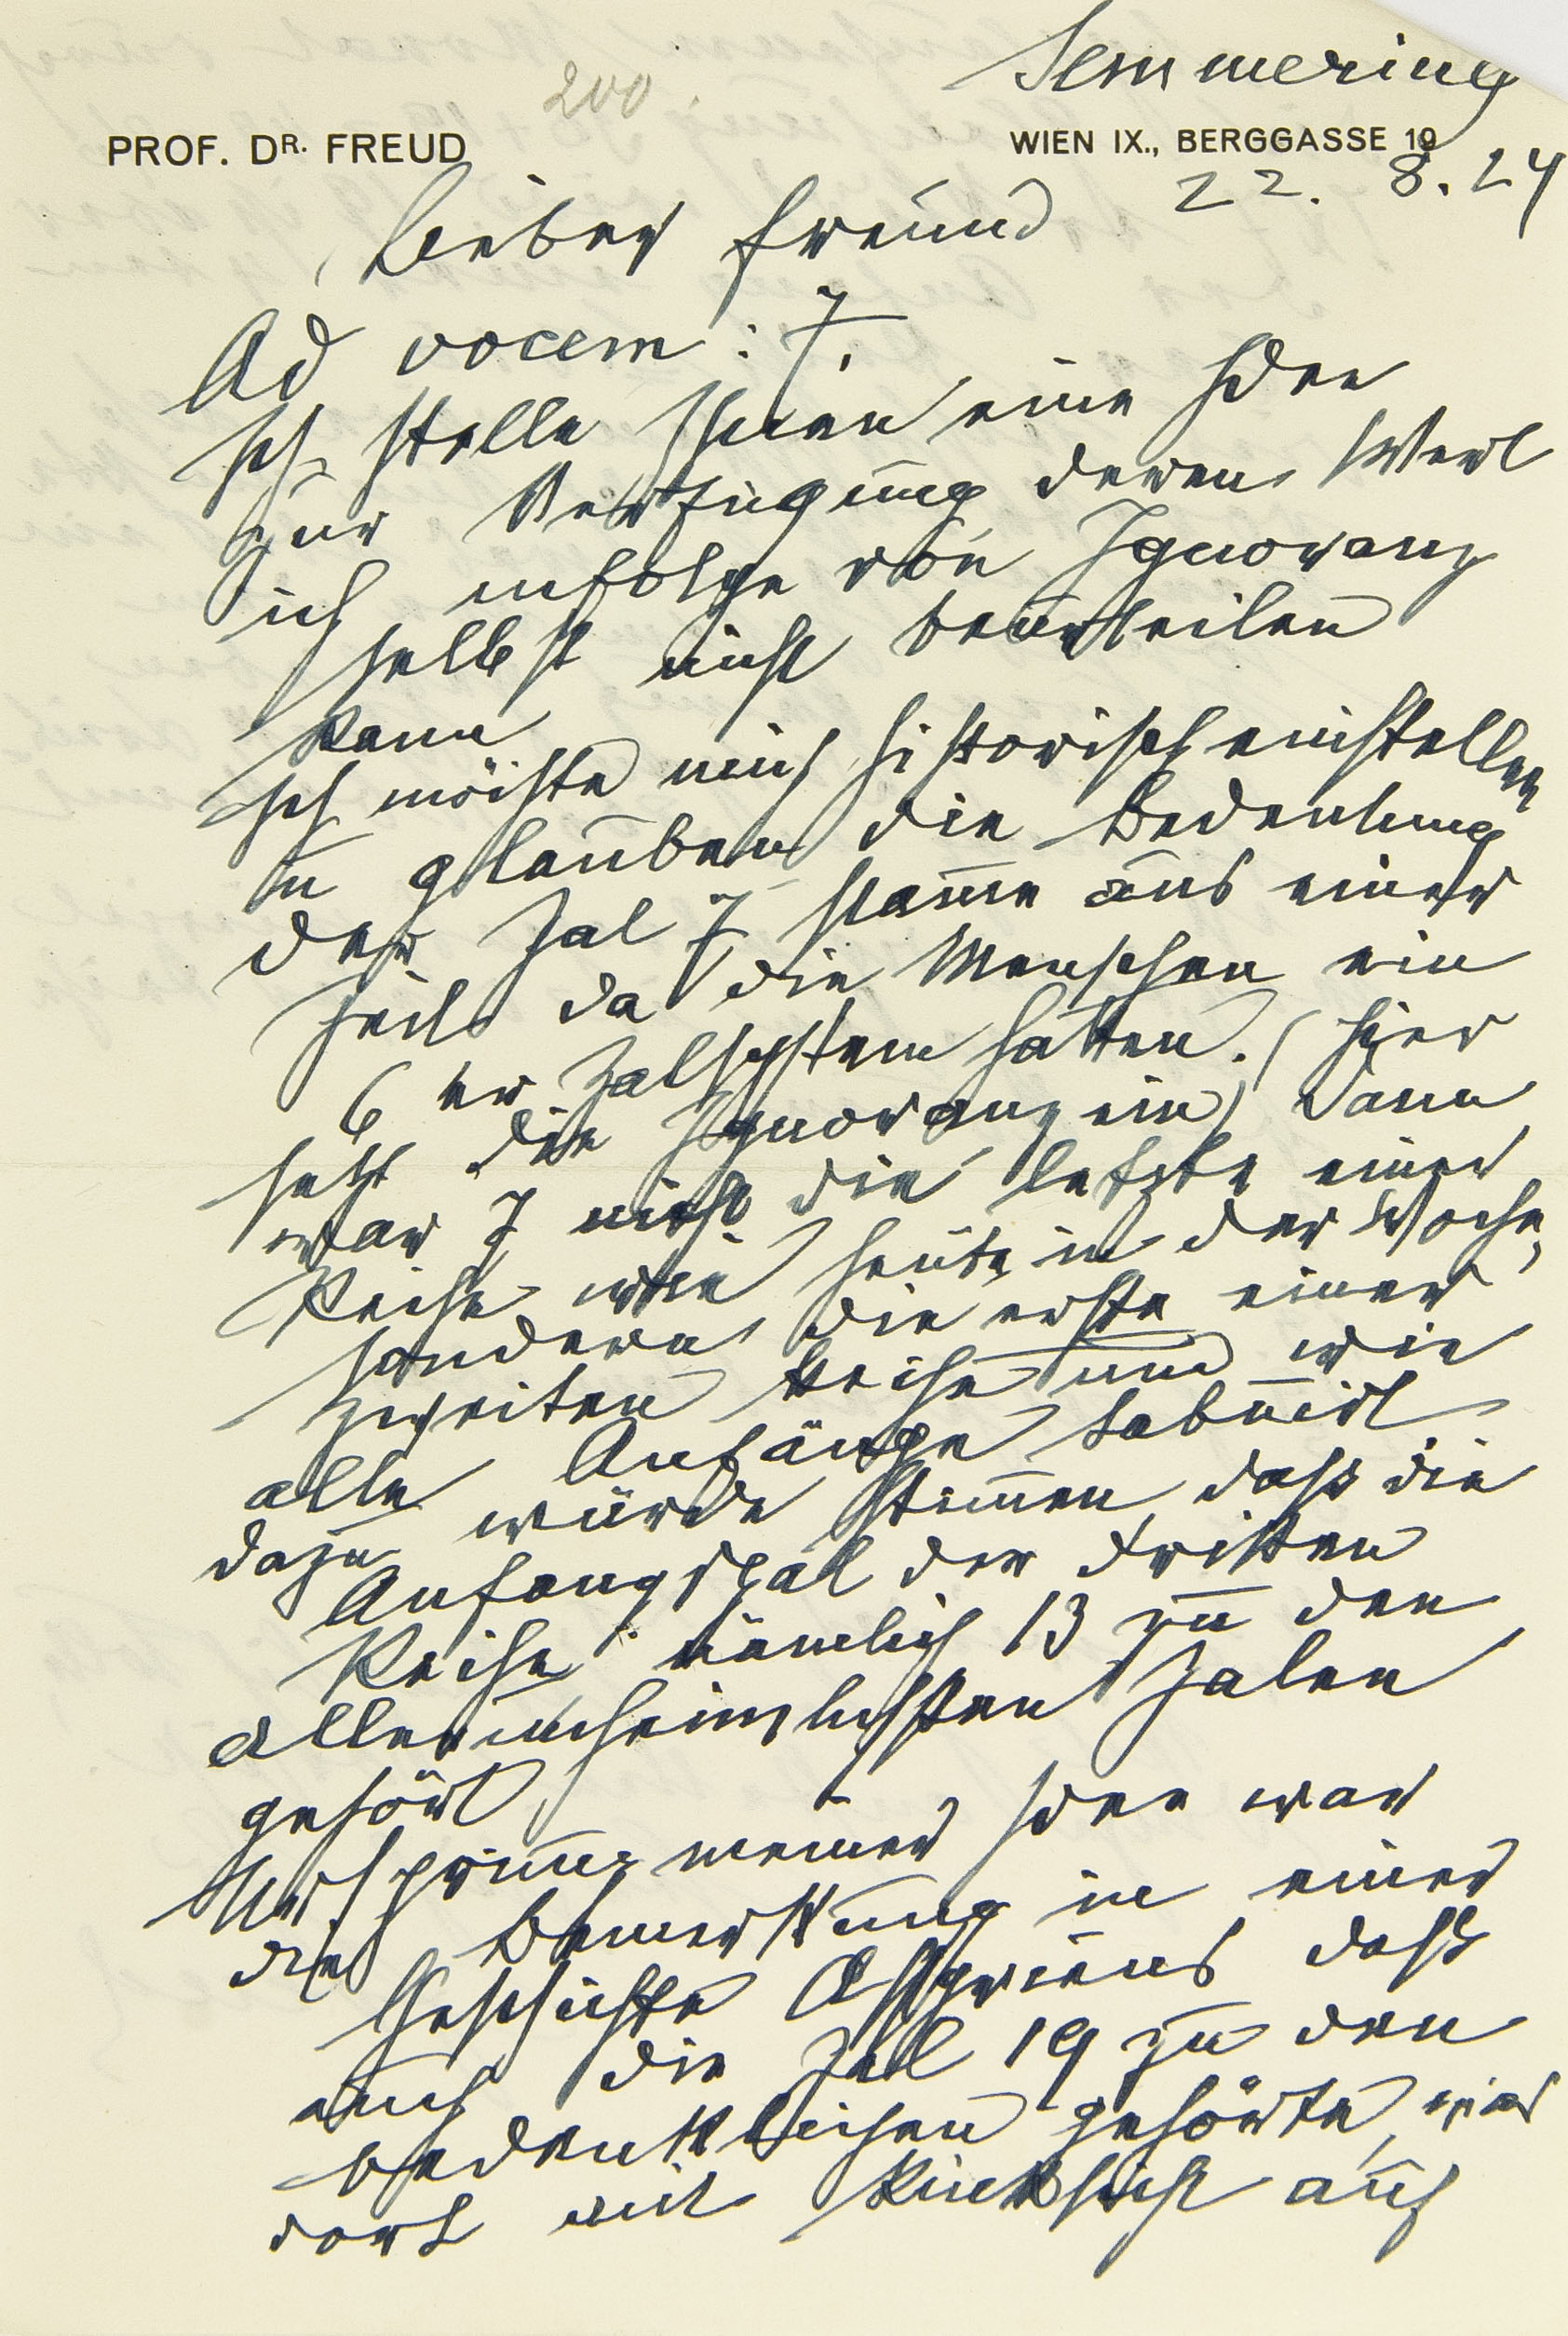 200.
Semmering
PROF. DR. FREUD
WIEN IX., BERGGASSE 19
22. 8. 24
Lieber Freund
Ad vocem: 7.
Ich stelle Ihnen eine Idee
zur Verfügung deren Wert
ich infolge von Ignoranz
selbst nicht beurteilen
kann
Ich möchte mich historisch einstellen
u glauben die Bedeutung
der Zal 7 stam̄e aus einer
Zeit da die Menschen ein
6 er Zalsystem hatten. (Hier
setzt die Ignoranz ein) Dann
war 7 nicht die letzte einer
Reihe wie heute in der Woche,
sondern die erste einer
zweiten Reihe und wie
alle Anfänge tabuirt
dazu würde stim̄en dass die
Anfangszal der dritten
Reihe: nämlich 13 zu den
allerunheimlichsten Zalen
gehört,
Ursprung meiner Idee war
die Bemerkung in einer
Geschichte Assyriens dass
auch die Zal 19 zu den
bedenklichen gehörte, wie
dort mit Rücksicht auf